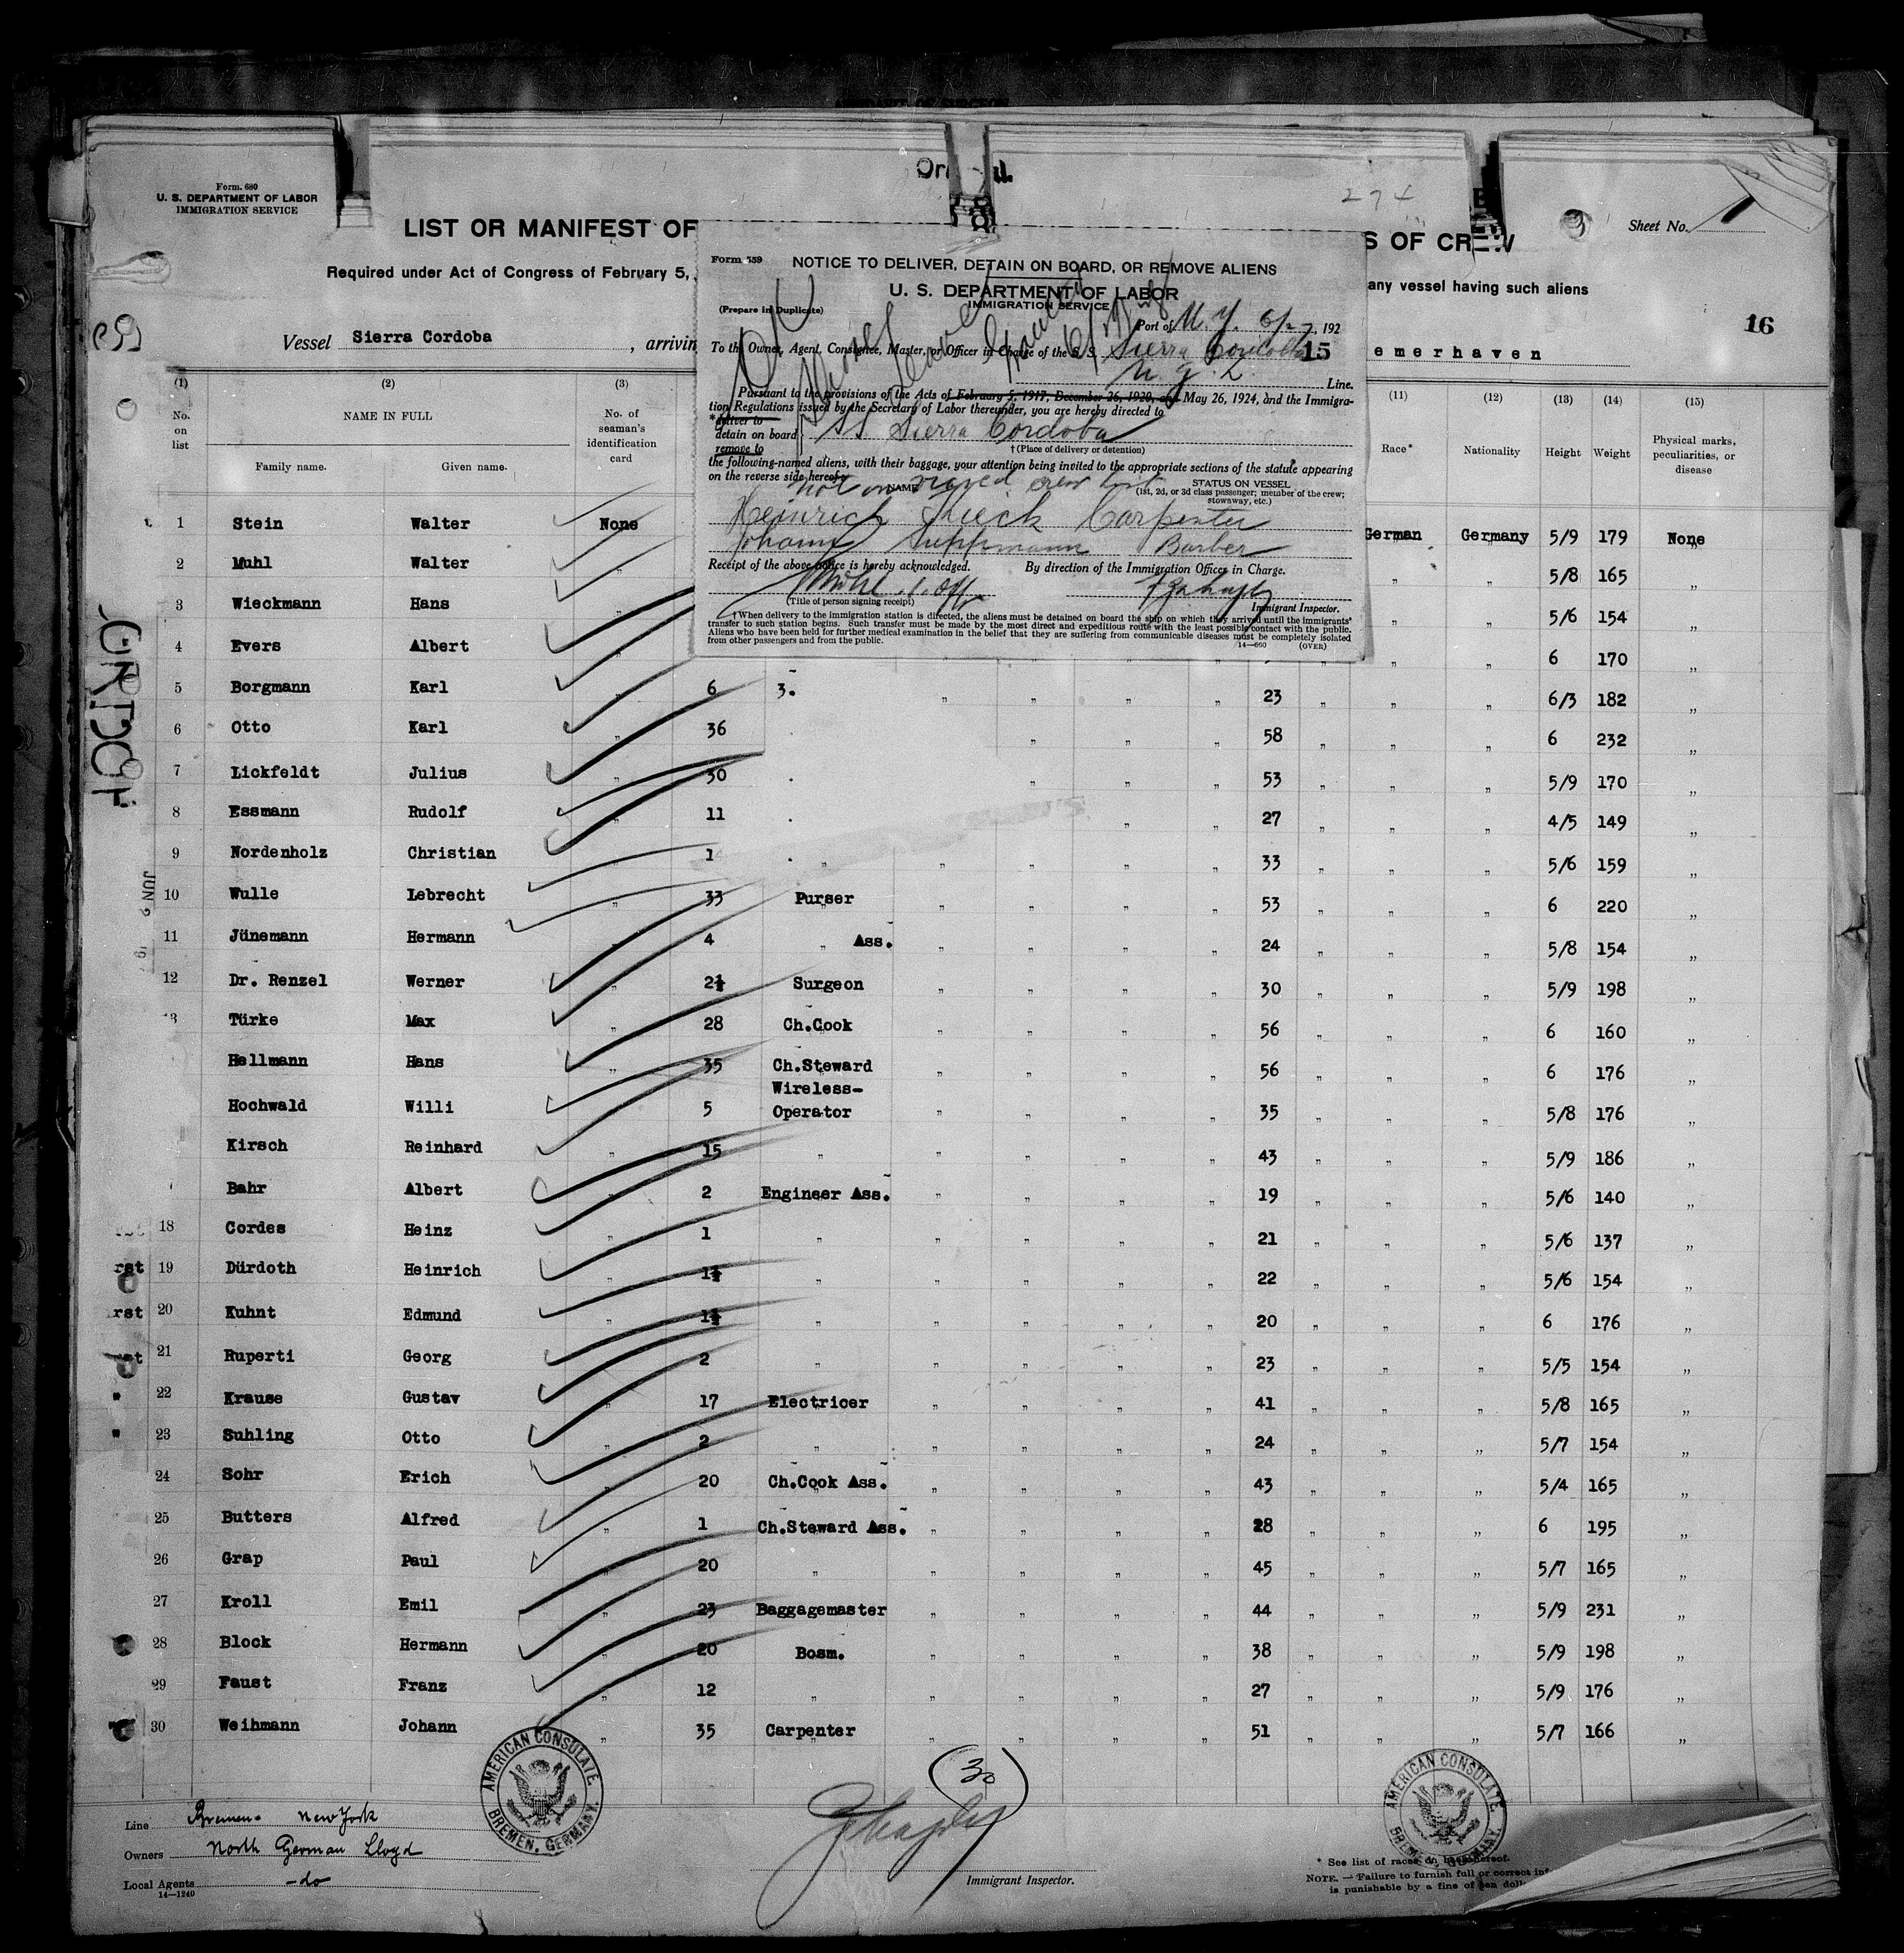 Form. 680
U. S. DEPARTMENT OF LABOR
IMMIGRATION SERVICE
274
Sheet No. 1
LIST OR MANIFEST OF
S OF CREW
Required under Act of Congress of February 5,
any vessel having such aliens
16
Vessel Sierra Cordoba , arriving
emerhaven
Form 559
NOTICE TO DELIVER, DETAIN ON BOARD, OR REMOVE ALIENS
U. S. DEPARTMENT OF LABOR
IMMIGRATION SERVICE
(Prepare in Duplicate)
Port of N. Y. 6/27, 192
To the Owner, Agent, Consignee, Master, or Officer in Charge of the S. S. Sierra Cordoba 15
N. G. L. Line.
Pursuant to the provisions of the Acts of February 5, 1917, December 26, 1920, and May 26, 1924, and the Immigra-
tion Regulations issued by the Secretary of Labor thereunder, you are hereby directed to
*deliver to
detain on board SS Sierra Cordoba
remove to
†(Place of delivery or detention)
the following-named aliens, with their baggage, your attention being invited to the appropriate sections of the statute appearing
on the reverse side hereof.
not on visaed crew list
NAME
STATUS ON VESSEL
(1st, 2d, or 3d class passenger; member of the crew;
stowaway, etc.)
Heinrich Lieck Carpenter
Johann Barber
Receipt of the above notice is hereby acknowledged. By direction of the Immigration Officer in Charge.
Muhl 1. Off
(Title of person signing receipt)
Immigrant Inspector.
†When delivery to the immigration station is directed, the aliens must be detained on board the ship on which they arrived until the immigrants'
transfer to such station begins. Such transfer must be made by the most direct and expeditious route with the least possible contact with the public.
Aliens who have been held for further medical examination in the belief that they are suffering from communicable diseases must be completely isolated
from other passengers and from the public.
14—660 (OVER)
(1) (2) (3) (11) (12) (13) (14) (15)
No. on list NAME IN FULL No. of seaman's identification card Race* Nationality Height Weight Physical marks, peculiarities, or disease
Family name. Given name.
1 Stein Walter None German Germany 5/9 179 None
2 Muhl Walter „ „ „ 5/8 165 „
3 Wieckmann Hans „ „ „ 5/6 154 „
4 Evers Albert „ „ „ 6 170 „
5 Borgmann Karl „ 6 3. „ „ „ „ 23 „ „ „ 6/3 182 „
6 Otto Karl „ 36 „ „ „ 58 „ „ „ 6 232 „
7 Lickfeldt Julius „ 30 „ „ „ 53 „ „ „ 5/9 170 „
8 Essmann Rudolf „ 11 „ „ 27 „ „ „ 4/5 149 „
9 Nordenholz Christian „ 1 „ „ „ „ „ 33 „ „ „ 5/6 159 „
10 Wulle Lebrecht „ 33 Purser „ „ „ „ 53 „ „ „ 6 220 „
11 Jünemann Hermann „ 4 „ Ass. „ „ „ „ 24 „ „ „ 5/8 154 „
12 Dr. Renzel Werner „ 2½ Surgeon „ „ „ „ 30 „ „ „ 5/9 198 „
13 Türke Max „ 28 Ch.Cook „ „ „ „ 56 „ „ „ 6 160 „
Hellmann Hans „ 35 Ch.Steward „ „ „ „ 56 „ „ „ 6 176 „
Hochwald Willi „ 5 Wireless-Operator „ „ „ „ 35 „ „ „ 5/8 176 „
Kirsch Reinhard „ 15 „ „ „ „ „ 43 „ „ „ 5/9 186 „
Bahr Albert „ 2 Engineer Ass. „ „ „ „ 19 „ „ „ 5/6 140 „
18 Cordes Heinz „ 1 „ „ „ „ „ 21 „ „ „ 5/6 137 „
19 Dürdoth Heinrich „ 1½ „ „ „ „ „ 22 „ „ „ 5/6 154 „
20 Kuhnt Edmund „ 1½ „ „ „ „ „ 20 „ „ „ 6 176 „
21 Ruperti Georg „ 2 „ „ „ „ „ 23 „ „ „ 5/5 154 „
22 Krause Gustav „ 17 Electricer „ „ „ „ 41 „ „ „ 5/8 165 „
23 Suhling Otto „ 2 „ „ „ „ „ 24 „ „ „ 5/7 154 „
24 Sohr Erich „ 20 Ch.Cook Ass. „ „ „ „ 43 „ „ „ 5/4 165 „
25 Butters Alfred „ 1 Ch.Steward Ass. „ „ „ „ 28 „ „ „ 6 195 „
26 Grap Paul „ 20 „ „ „ „ „ 45 „ „ „ 5/7 165 „
27 Kroll Emil „ 23 Baggagemaster „ „ „ „ 44 „ „ „ 5/9 231 „
28 Block Hermann „ 20 Bosm. „ „ „ „ 38 „ „ „ 5/9 198 „
29 Faust Franz „ 12 „ „ „ „ „ 27 „ „ „ 5/9 176 „
30 Weihmann Johann „ 35 Carpenter „ „ „ „ 51 „ „ „ 5/7 166 „
AMERICAN CONSULATE. BREMEN, GERMANY.
AMERICAN CONSULATE BREMEN, GERMANY.
(30)
Line Bremen - New York
Owners North German Lloyd
Local Agents -do-
14—1240
Immigrant Inspector.
* See list of races on back hereof.
NOTE. — Failure to furnish full or correct inf
is punishable by a fine of ten doll
JUN 2